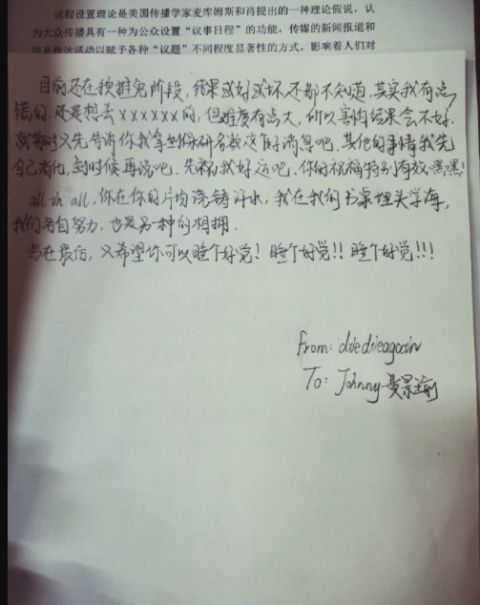 议程设置理论是美国传播学家麦库姆斯和肖提出的一种理论假说，认
为大众传播具有一种为公众设置“议事日程”的功能，传媒的新闻报道和
信息传达活动以赋予各种“议题”不同程度显著性的方式，影响着人们对
目前还在按推免阶段，结果或好或坏还都不知道，其实我有点
慌的，还是想去xxxxxx的，但难度有点大，所以害怕结果会不好。
就暂时又先告诉你我拿到保研名额这个好消息吧，其他的事情我先
自己消化，到时候再说吧。先祝我好运吧，你的祝福特别有效，嘿嘿！
all in all，你在你的片场流铸汗水，我在我的书桌埋头学海，
我们各自努力，也是另一种的相拥。
写在最后，又希望你可以睡个好觉！睡个好觉！！睡个好觉！！！
from: diedieagain
To: Johnny 黄景瑜